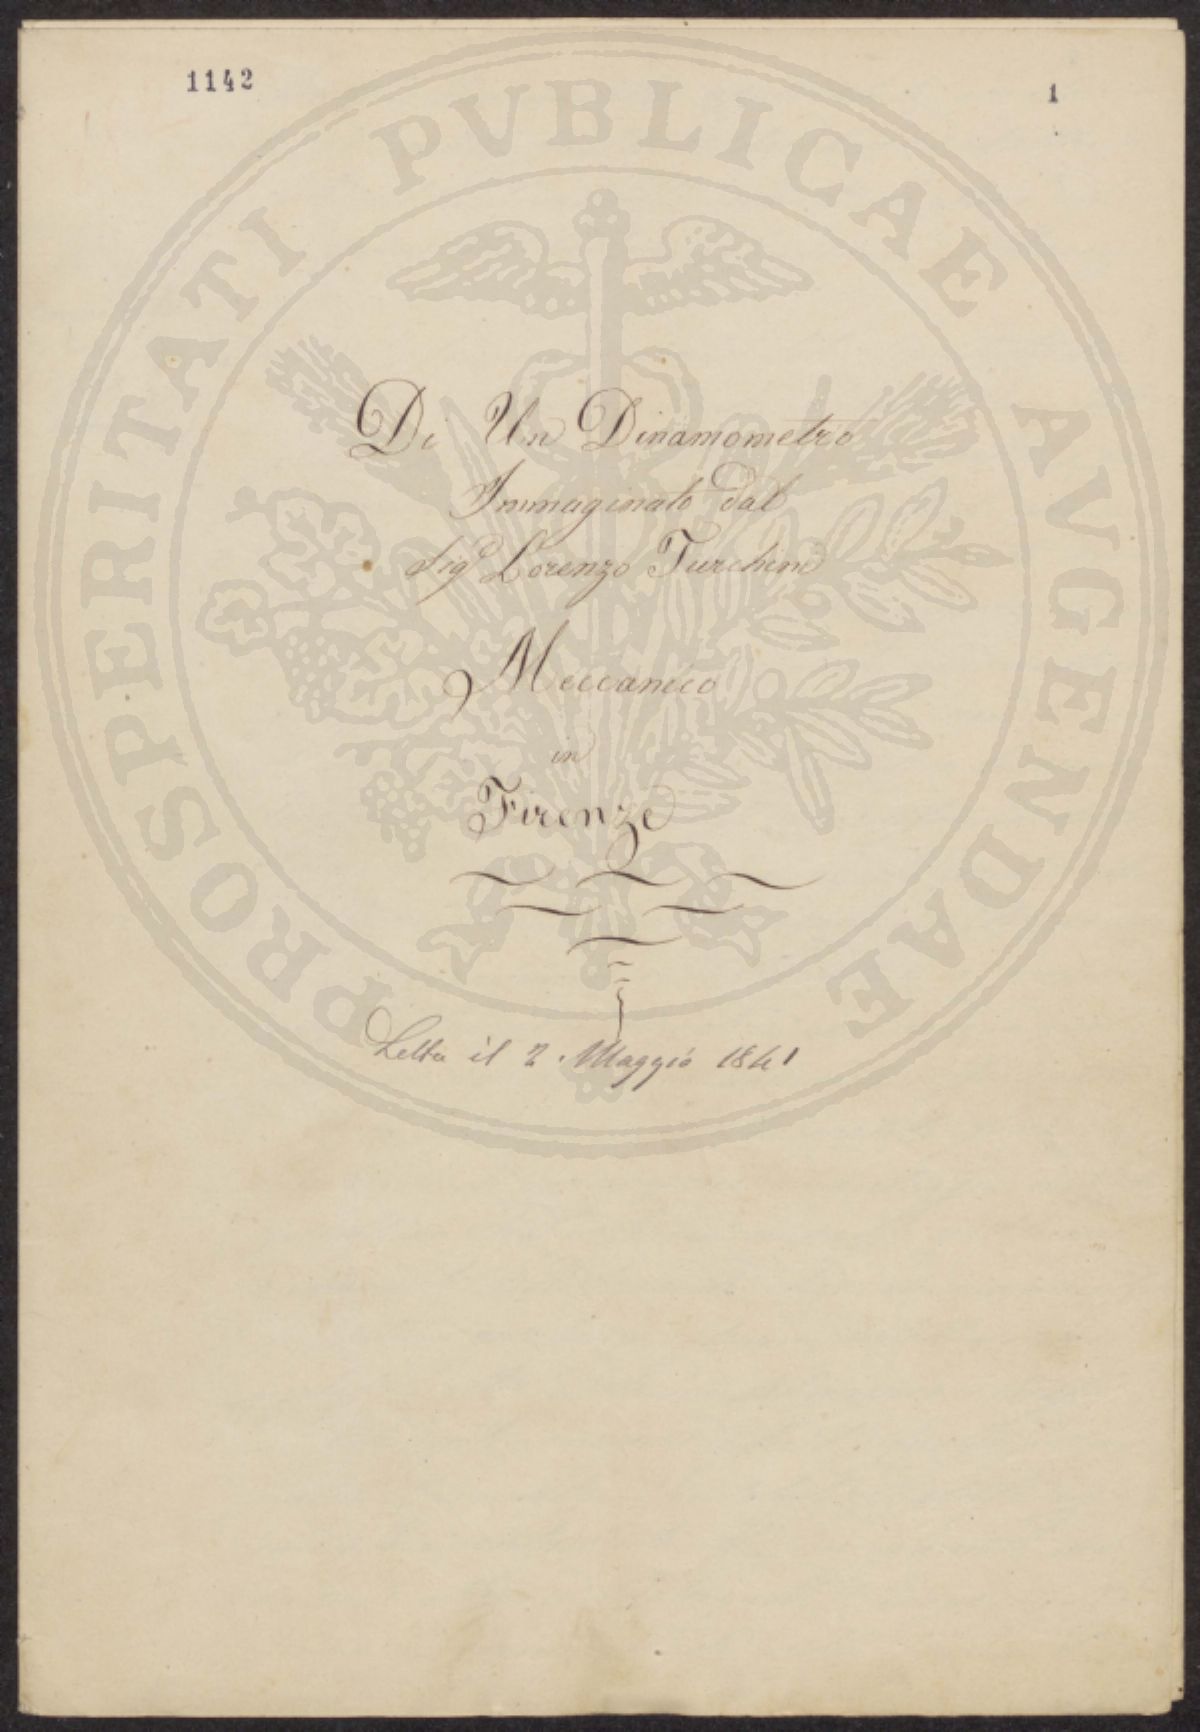 1142
1
PROSPERITATI PVBLICAE AVGENDAE
Di Un Dinamometro
Immaginato dal
Sigr Lorenzo Turchini
Meccanico
in
Firenze
Letta il 2 Maggio 1841